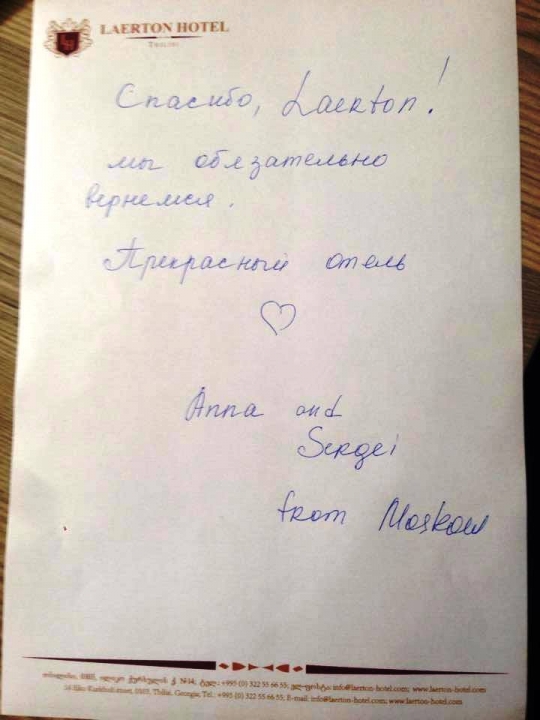 LAERTON HOTEL
TBILISI
Спасибо, Laerton!
мы обязательно
вернемся.
Прекрасный отель
Anna and
Sergei
from Moskow
0105, N14, +995 (0) 322 55 66 55; info@laerton-hotel.com; www.laerton-hotel.com
14 street, 0105, Tbilisi, Georgia, Tel.: +995 (0) 322 55 66 55; E-mail: info@laerton-hotel.com; www.laerton-hotel.com